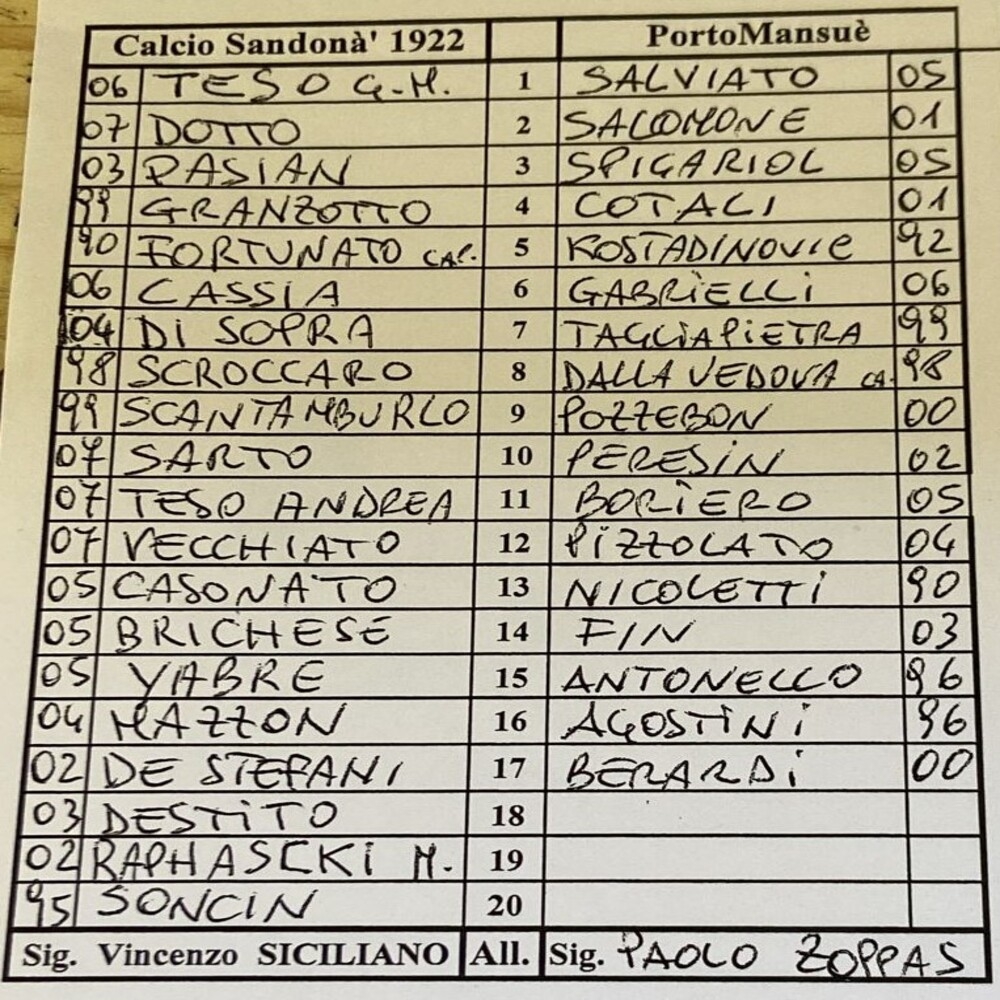 Calcio Sandonà' 1922 PortoMansuè
06 TESO G.M. 1 SALVIATO 05
07 DOTTO 2 SALOMONE 01
03 PASIAN 3 SPIGARIOL 05
99 GRANZOTTO 4 COTALI 01
90 FORTUNATO CAP. 5 KOSTADINOVIC 92
06 CASSIA 6 GABRIELLI 06
04 DI SOPRA 7 TAGLIAPIETRA 99
98 SCROCCARO 8 DALLA VEDOVA CA. 98
99 SCANTAMBURLO 9 POZZEBON 00
07 SARTO 10 PERESIN 02
07 TESO ANDREA 11 BORIERO 05
07 VECCHIATO 12 PIZZOLATO 04
05 CASONATO 13 NICOLETTI 90
05 BRICHESE 14 FIN 03
05 YABRE 15 ANTONELLO 96
04 MAZZON 16 AGOSTINI 96
02 DE STEFANI 17 BERARDI 00
03 DESTITO 18
02 RAPHASCKI M. 19
95 SONCIN 20
Sig. Vincenzo SICILIANO All. Sig. PAOLO ZOPPAS